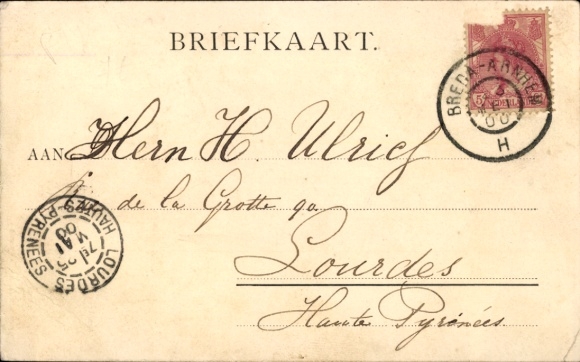 BRIEFKAART.
BREDA-ARNHEM
H
AAN Hern H. Ulrich
de la Grotte 90
Lourdes
Haute Pyrénées.
LOURDES
HAUTES-PYRENEES